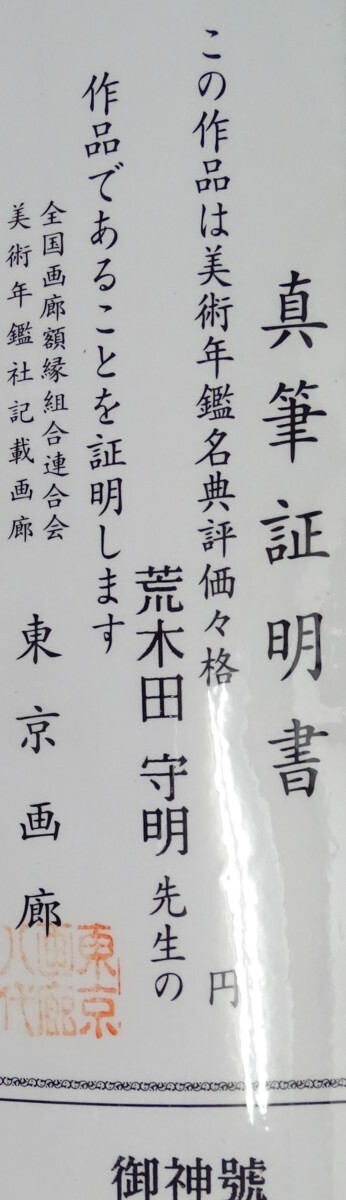 真筆証明書
この作品は美術年鑑名典評価々格 円
荒木田 守明 先生の
作品であることを証明します
全国画廊額縁組合連合会
美術年鑑社記載画廊
東京画廊
東京
画廊
八代
御神號